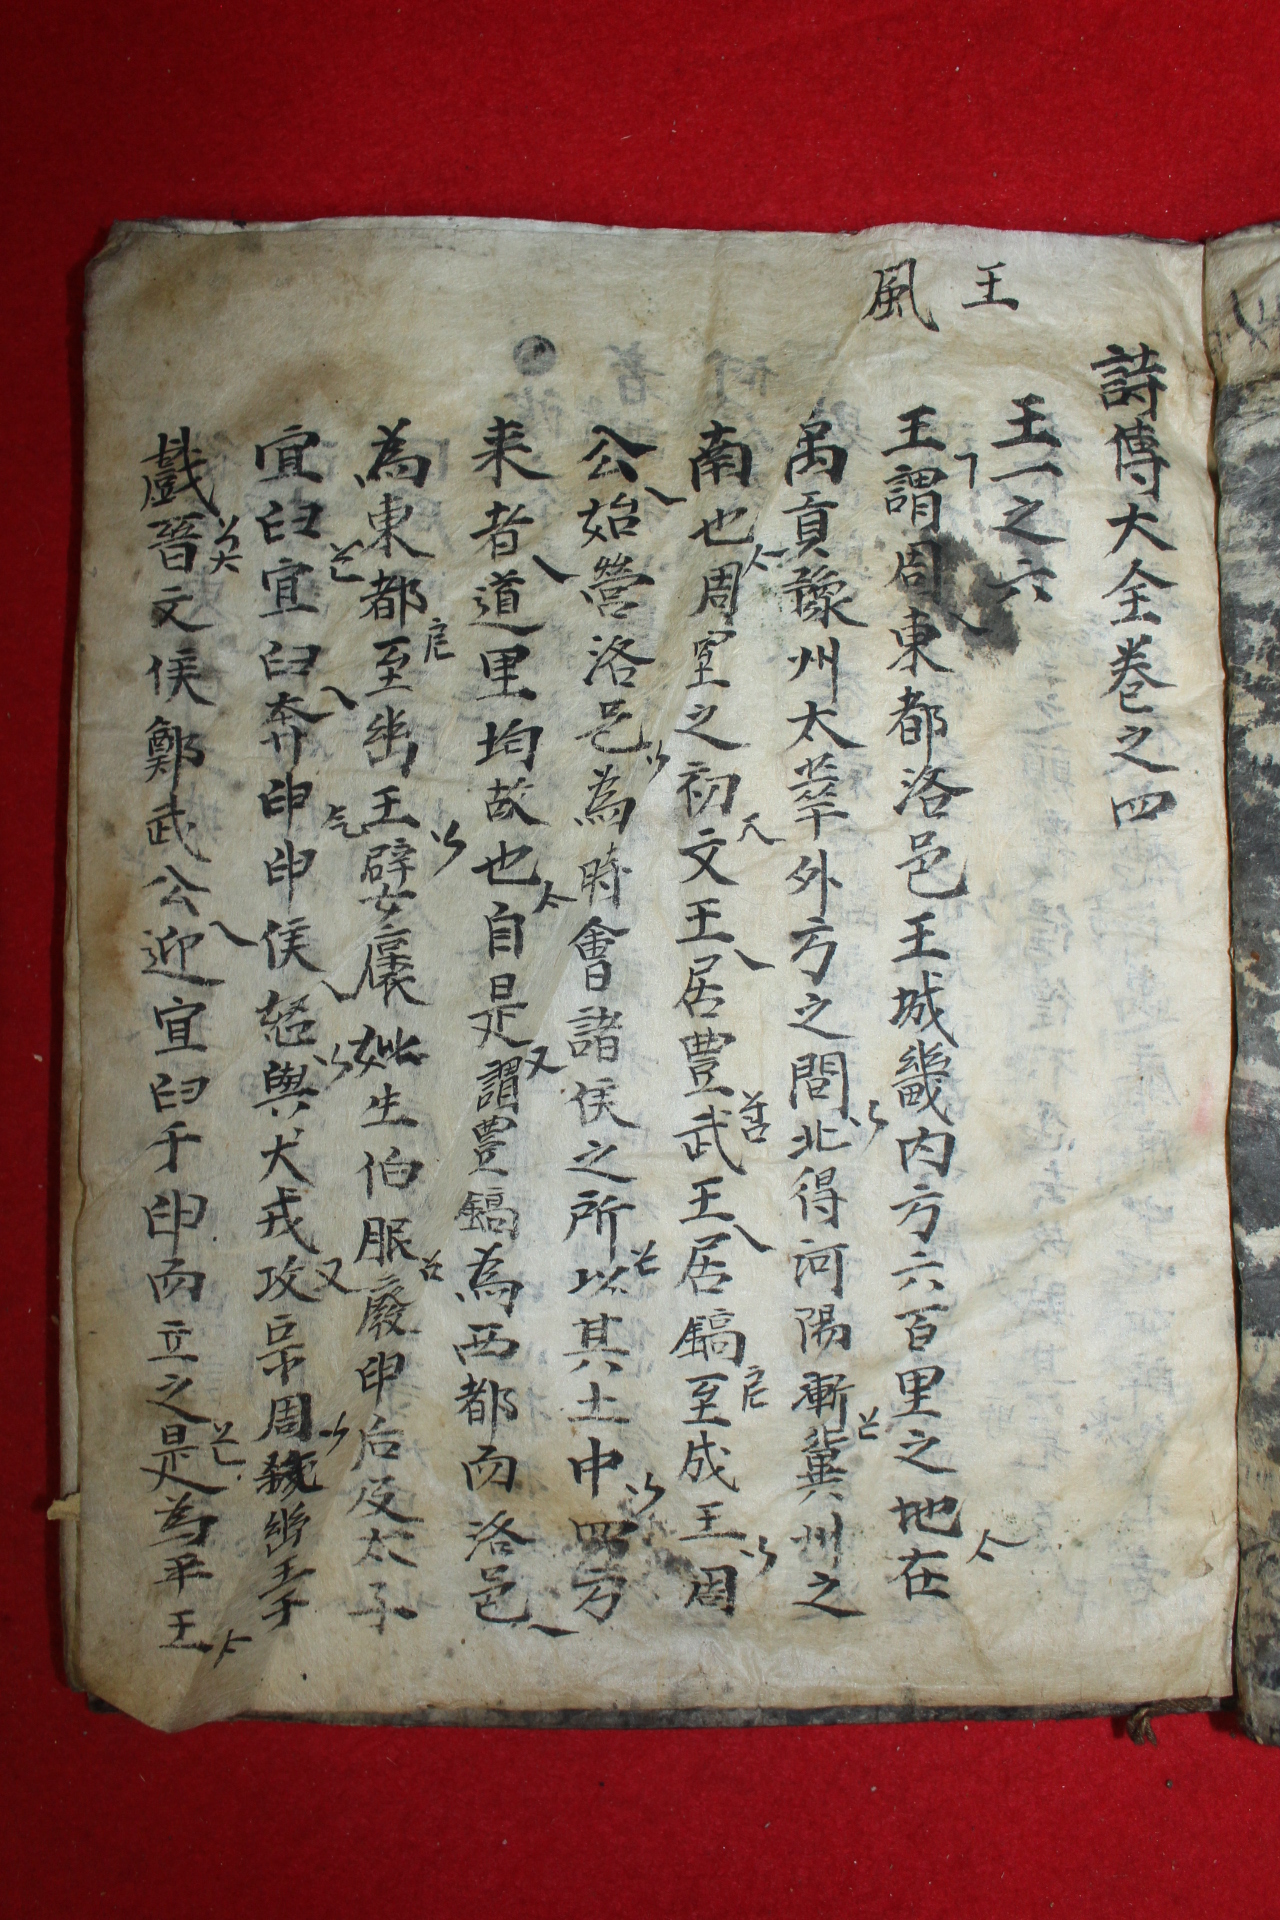 王風
詩傳大全卷之四
王一之六
王謂周東都洛邑王城畿內方六百里之地在
禹貢豫州太華外方之間北得河陽漸冀州之
南也周室之初文王居豊武王居鎬至成王周
公始營洛邑為時會諸侯之所以其土中四方
来者道里均故也自是謂豊鎬為西都而洛邑
為東都至幽王嬖褒姒生伯服廢申后及太子
宜臼宜臼奔申申侯怒與犬戎攻宗周弑幽王于
戲晉文侯鄭武公迎宜臼于申而立之是為平王